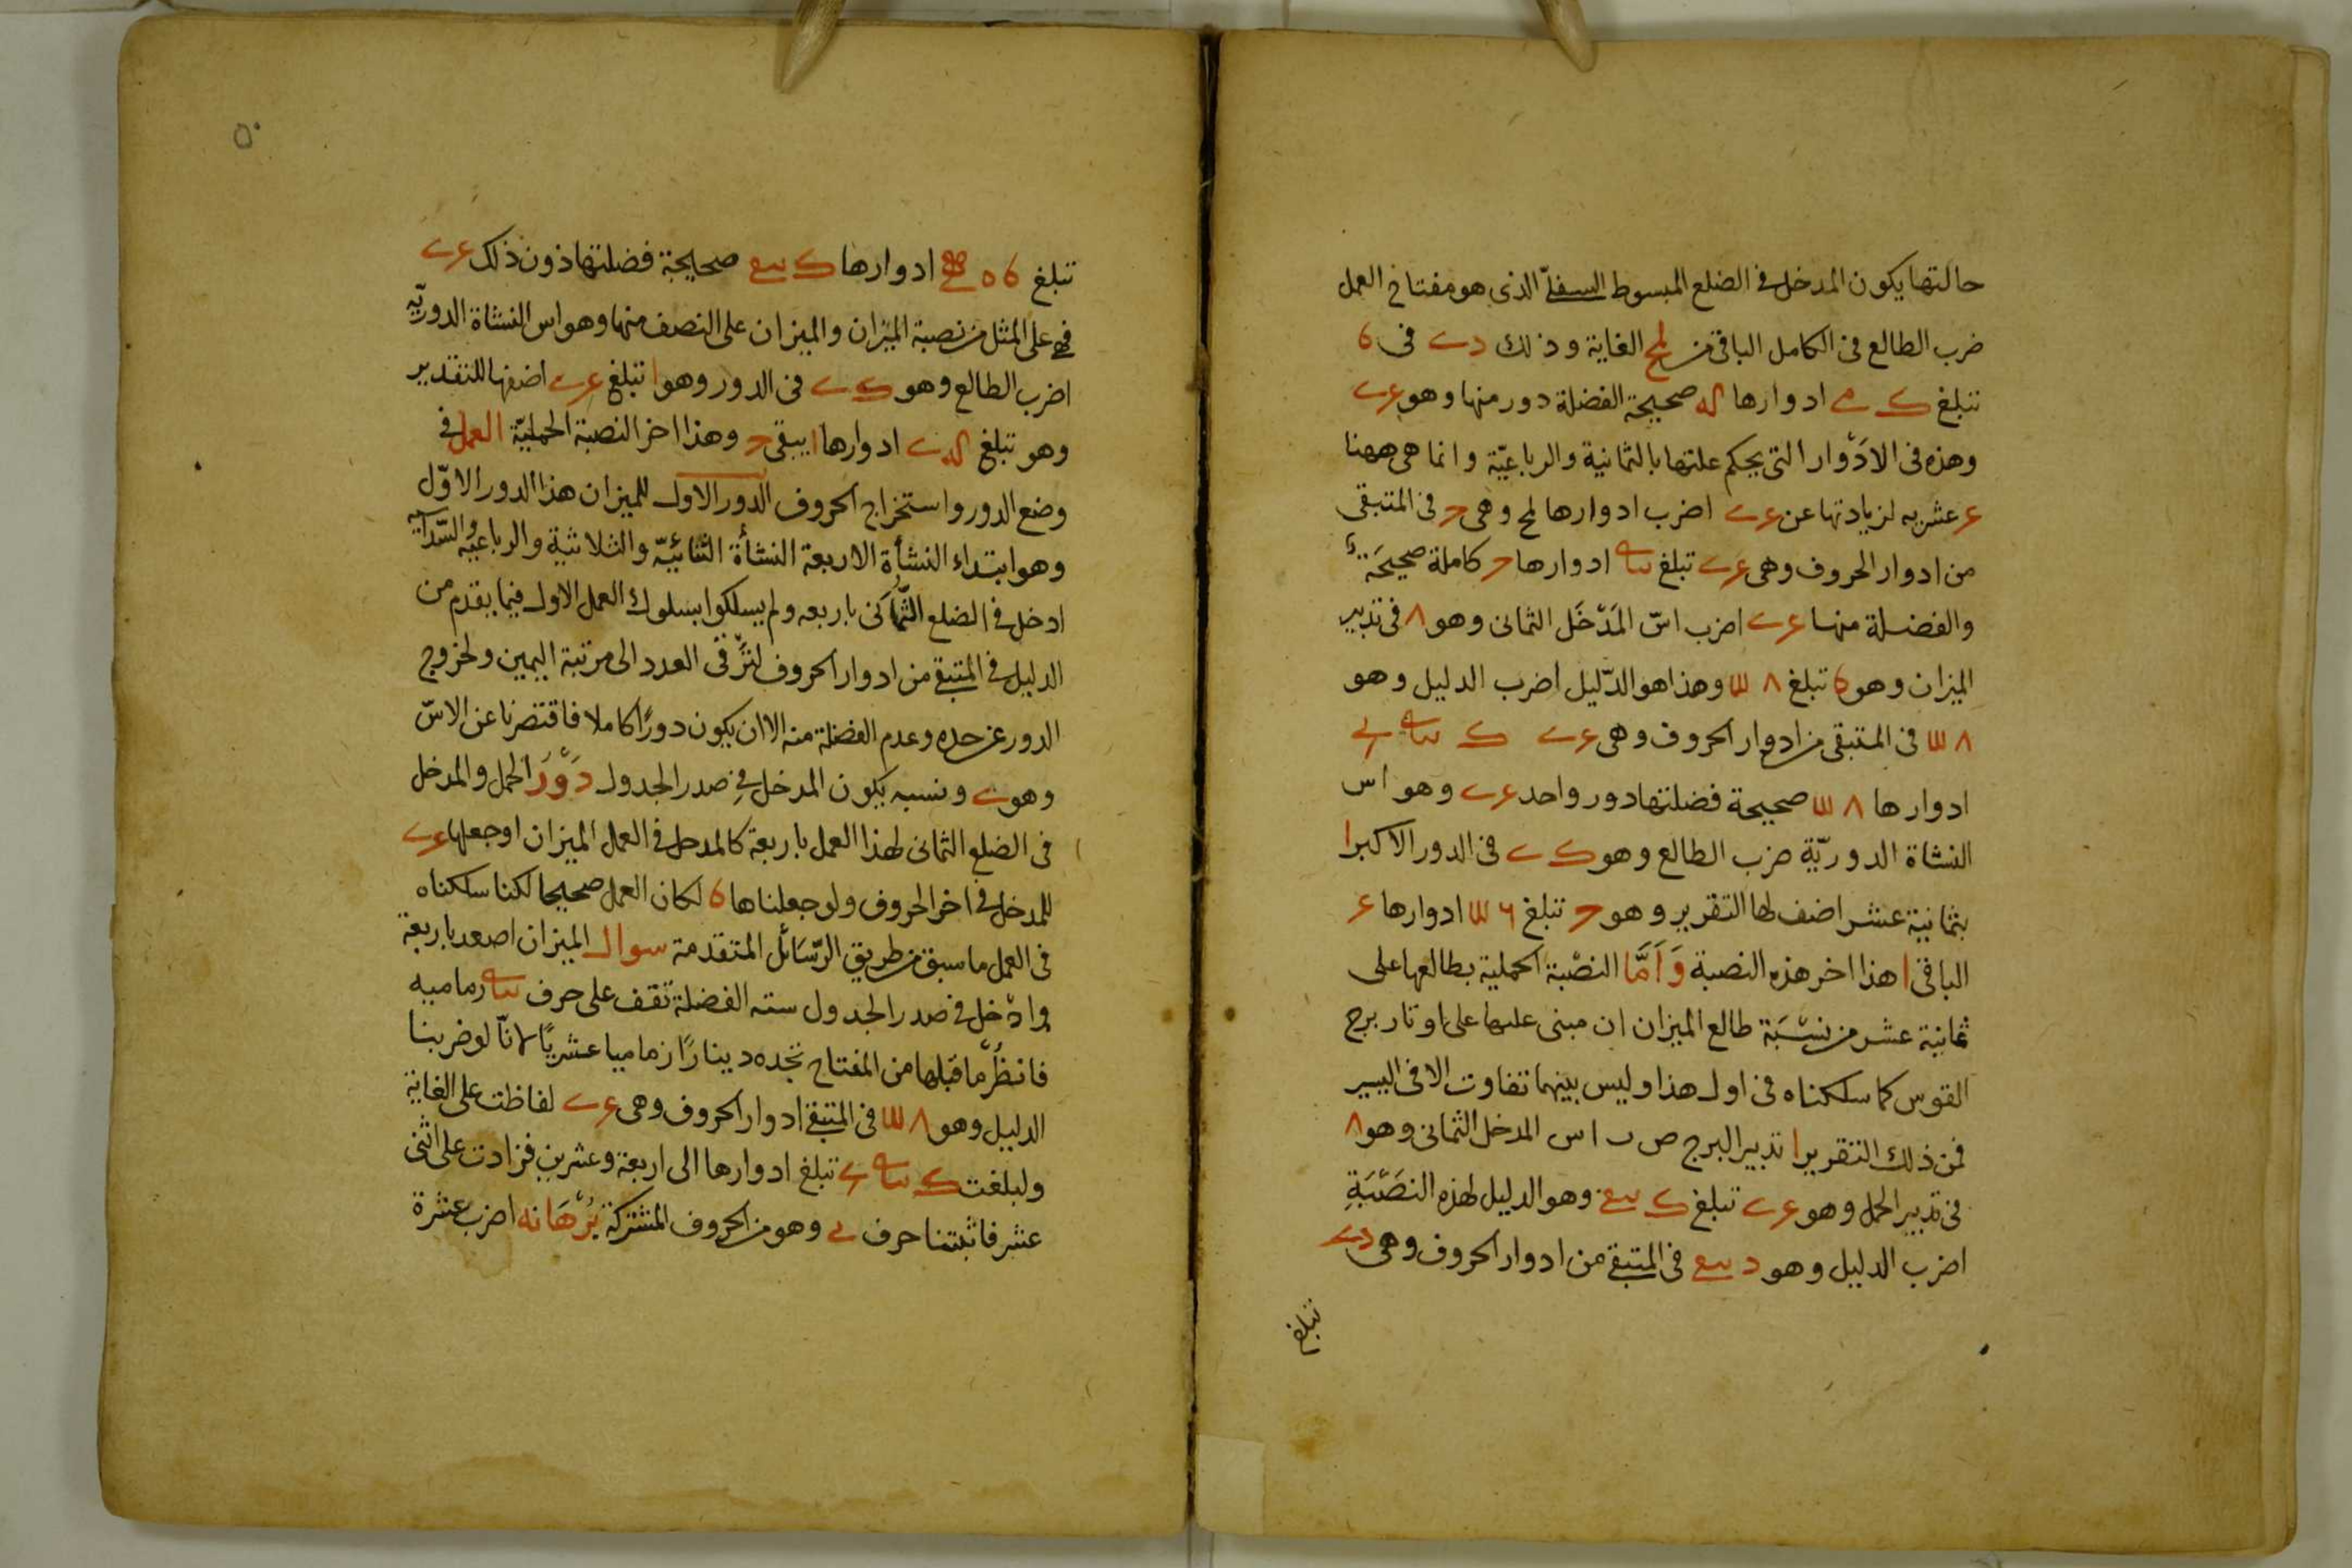 حالتها يكون المدخل في الضلع المبسوط السفلي الذي هو مفتاح العمل
ضرب الطالع في الكامل الباقي من لح الغاية وذلك في
تبلغ ادوارها صحيحة الفضلة دور منها وهو
وهذه في الادَوْار التى يحكم علتها بالثمانية والرباعيّة وانما هي ههنا
عشريه لزيادتها عن اضرب ادوارها لح وهي في المتبقى
من ادوار الحروف وهي تبلغ ادوارها كاملة صحيحَة
والفضلة منها اضرب اسّ المَدْخَل الثمانى وهو ٨ في تدبير
الميزان وهو تبلغ ٨ وهذا هو الدّليل اضرب الدليل وهو
٨ في المتبقى من ادوار الحروف وهي
ادوارها ٨ صحيحة فضلتها دور واحد وهو اس
النشاة الدوريّة ضرب الطالع وهو في الدور الاكبر ا
بثمانية عشر اضف لها التقرير وهو تبلغ ادوارها
الباقى ا هذا اخر هذه النصبة وَاَمَّا النصْبة الحملية بطالعها على
ثمانية عشر من نسْبَة طالع الميزان ان مبنى عليها على اوتار برج
القوس كما سلكناه في اول هذا وليس بينهما تفاوت الا في اليسير
فمن ذلك التقرير ا تدبير البرج ص ب اس المدخل الثمانى وهو ٨
في تدبير الحمل وهو تبلغ وهو الدليل لهذه النصَبْةِ
اضرب الدليل وهو في المتبقي من ادوار الحروف وهي
تبلغ
٥٠
تبلغ ادوارها صحيحة فضلتها دون ذلك
فهي على المثل من نصبة الميزان والميزان على النصف منها وهو اس النشاة الدوريّه
اضرب الطالع وهو في الدور وهو ا تبلغ اضفها للتقدير
وهو تبلغ ادوارها ا يبقى وهذا اخر النصبة الحمليّة العمل في
وضع الدور واستخراج الحروف الدور الاول للميزان هذا الدور الاوّل
وهو ابتداء النشأة الاربعة النشأة الثنائيّه والثلاثية والرباعيه والسّداسيه
ادخل في الضلع الثّمانى باربعه ولم يسلكوا بسلوك العمل الاول فيما يقدم من
الدليل في المتبقي من ادوار الحروف لترقّى العدد الى مرتبة اليمين ولخروج
الدور عن حده وعدم الفضلة منه الا ان يكون دورًا كاملا فاقتصرنا عن الاسّ
وهو ونسبه يكون المدخل في صدر الجدول دَوْرَ الحمل والمدخل
في الضلع الثمانى لهذا العمل باربعة كالمدخل في العمل الميزان اوجعلها
للمدخل في اخر الحروف ولو جعلناها لكان العمل صحيحا لكنا سلكناه
في العمل ما سبق من طريق الرّسَائل المتقدمة سوال الميزان اصعد باربعة
وادْخل في صدر الجدول سته الفضلة تقف على حرف رماميه
فانظُرْ ما قبلها من المفتاح تجده دينارًا زماميا عشريًا لانّا لو ضربنا
الدليل وهو ٨ في المتبقي ادوار الحروف وهي لفاظت على الغاية
ولبلغت تبلغ ادوارها الى اربعة وعشرين فزادت على اثنى
عشر فاثبتنا حرف وهو من الحروف المشتركة بُرْهَانه اضرب عشرة